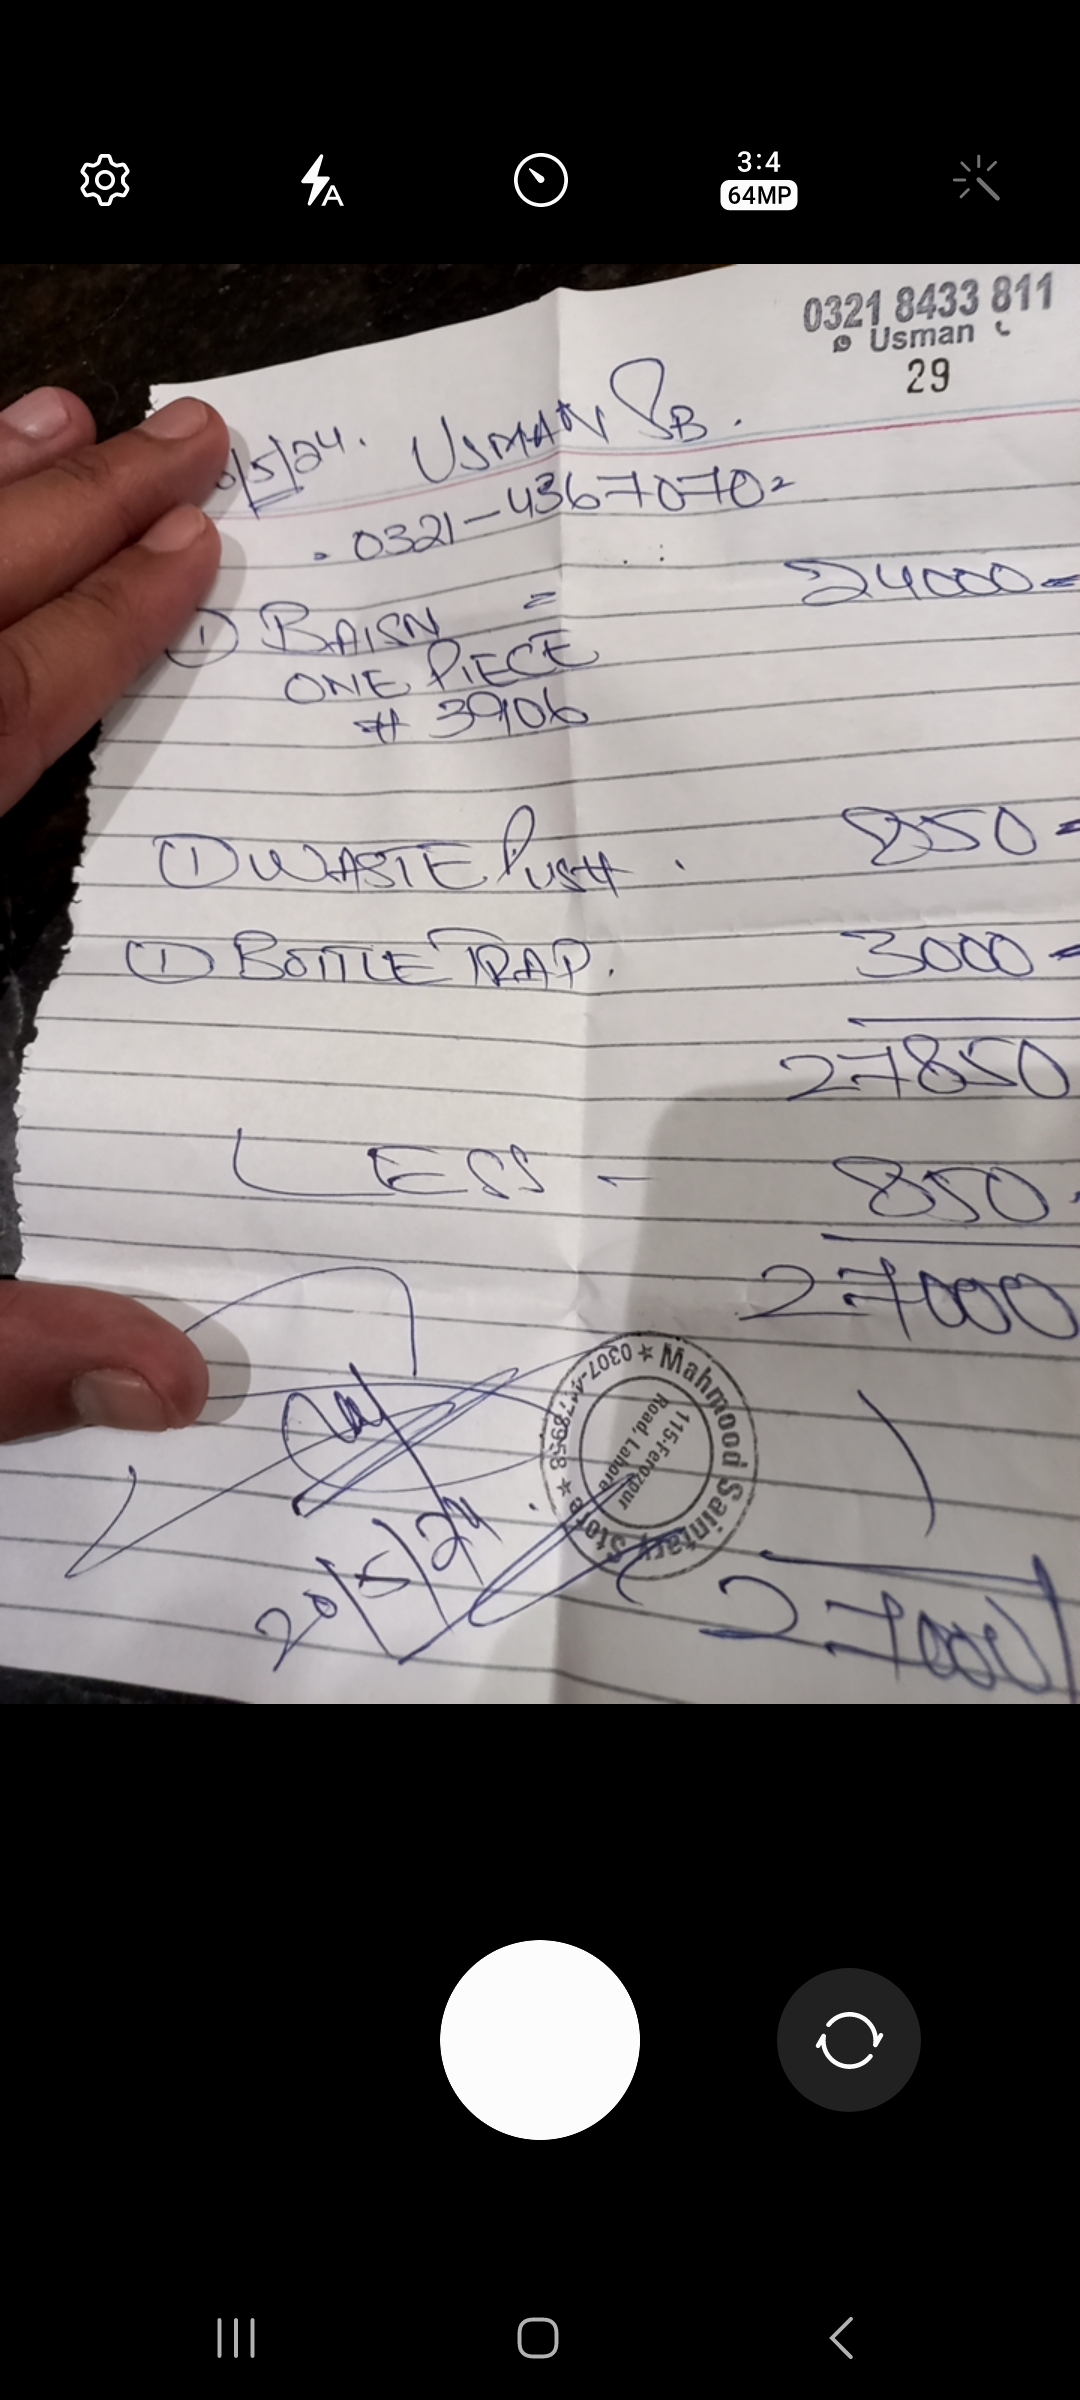 3:4
64MP
0321 8433 811
Usman
29
/5/24. USMAN SB.
0321-4367070
① BAISN = 24000=
ONE PIECE
# 3906
① WASTE PUSH. 850=
① BOTTLE TRAP. 3000=
27850
LESS - 850
27000
Mahmood Saintary Store
115-Ferozpur
Road, Lahore
20/5/24
27000/